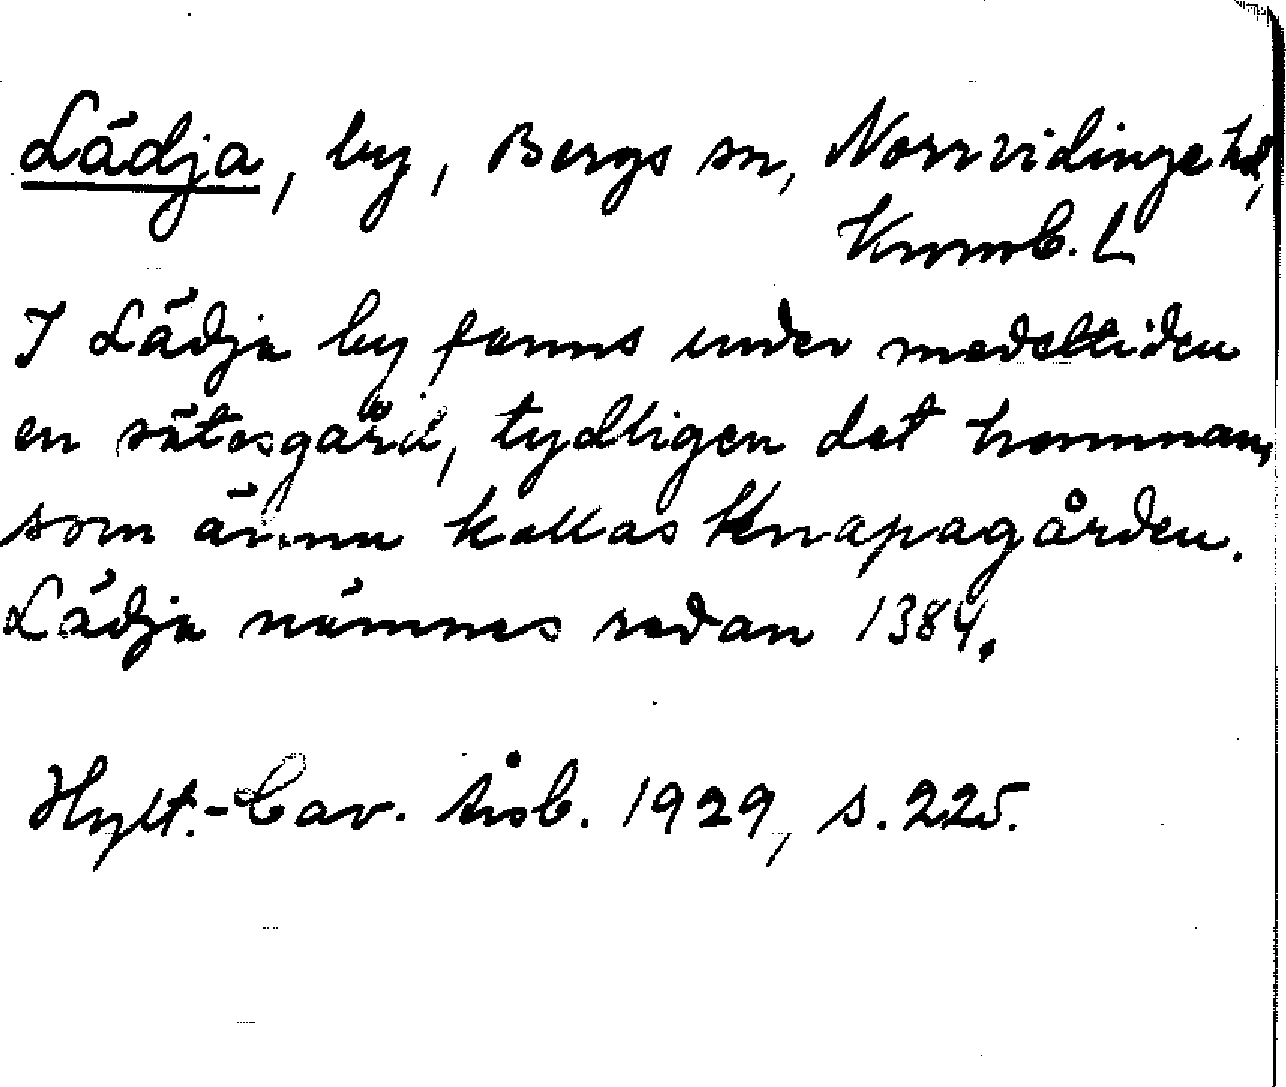 Lädja, by, Bergs sn, Norrvidinge hd,
Kronob. L
I Lädja by fanns under medeltiden
en sätesgård, tydligen det hemman,
som ännu kallas Knapagården.
Lädja nämnes redan 1384.
Hylt.-Cav. årsb. 1929, s. 225.